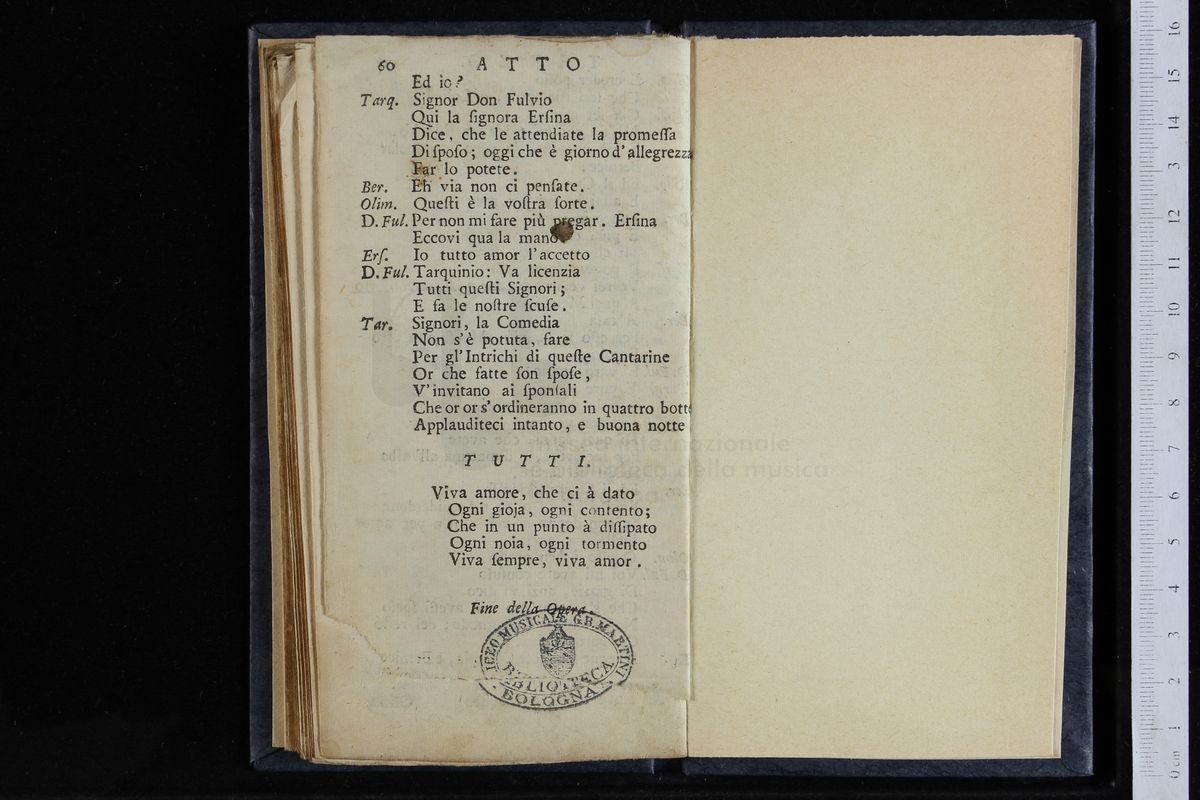 60 ATTO
Ed io?
Tarq. Signor Don Fulvio
Qui la ſignora Erſina
Dice, che le attendiate la promeſſa
Di ſpoſo; oggi che è giorno d'allegrezza
Far lo potete.
Ber. Eh via non ci penſate.
Olim. Queſti è la voſtra ſorte.
D. Ful. Per non mi fare più pregar. Erſina
Eccovi qua la mano
Erſ. Io tutto amor l'accetto
D. Ful. Tarquinio: Va licenzia
Tutti queſti Signori;
E fa le noſtre ſcuſe.
Tar. Signori, la Comedia
Non s'è potuta, fare
Per gl'Intrichi di queſte Cantarine
Or che fatte ſon ſpoſe,
V'invitano ai ſponſali
Che or or s'ordineranno in quattro botte
Applauditeci intanto, e buona notte
TUTTI.
Viva amore, che ci à dato
Ogni gioja, ogni contento;
Che in un punto à diſſipato
Ogni noia, ogni tormento
Viva ſempre, viva amor.
Fine della Opera.
LICEO MUSICALE G.B. MARTINI
BIBLIOTECA
BOLOGNA
museo internazionale
e biblioteca della musica
0 cm 1 2 3 4 5 6 7 8 9 10 11 12 13 14 15 16